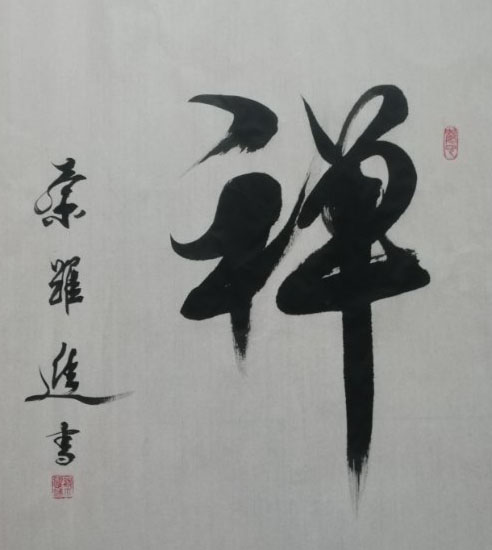 禅
蔡羅進書